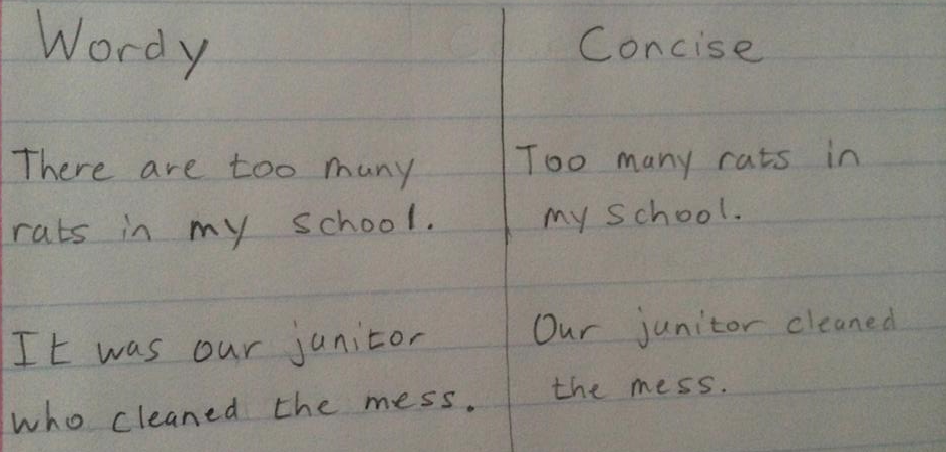 Wordy
Concise
There are too many
rats in my school.
Too many rats in
my school.
It was our janitor
who cleaned the mess.
Our janitor cleaned
the mess.